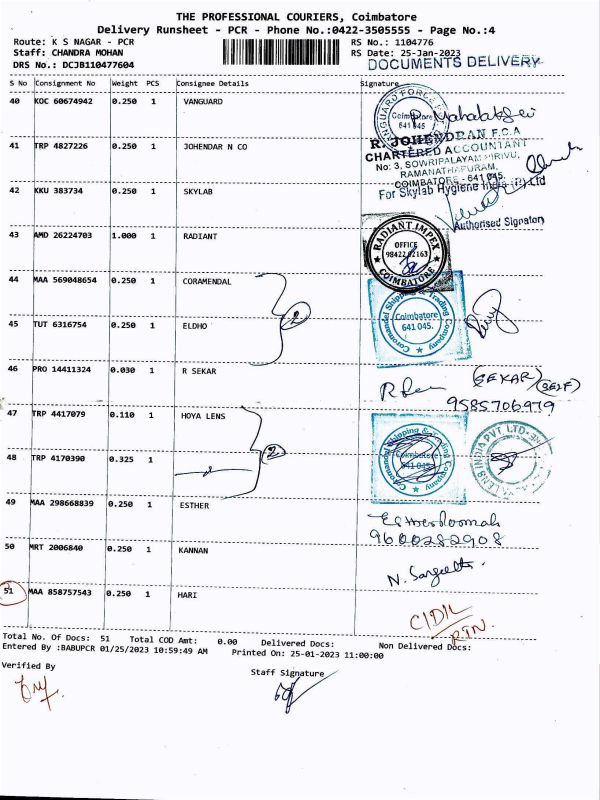 THE PROFESSIONAL COURIERS, Coimbatore
Delivery Runsheet - PCR - Phone No.:0422-3505555 - Page No.:4
Route: K S NAGAR - PCR RS No.: 1104776
Staff: CHANDRA MOHAN RS Date: 25-Jan-2023
DRS No.: DCJB110477604 DOCUMENTS DELIVERY
S No Consignment No Weight PCS Consignee Details Signature
40 KOC 60674942 0.250 1 VANGUARD
VANGUARD FORCE
Coimbatore
641 045
41 TRP 4827226 0.250 1 JOHENDAR N CO
R. JOHENDRAN F.C.A
CHARTERED ACCOUNTANT
No: 3, SOWRIPALAYAM PIRIVU,
RAMANATHAPURAM,
COIMBATORE - 641 045.
42 KKU 383734 0.250 1 SKYLAB
For Skylab Hygiene India (P) Ltd
Authorised Signatory
43 AMD 26224703 1.000 1 RADIANT
RADIANT IMPEX
OFFICE
98422 02163
COIMBATORE
44 MAA 569048654 0.250 1 CORAMENDAL
2
Coromandel Shipping & Trading Company
Coimbatore
641 045.
45 TUT 6316754 0.250 1 ELDHO
46 PRO 14411324 0.030 1 R SEKAR
(SEKAR) (SELF)
9585706979
47 TRP 4417079 0.110 1 HOYA LENS
2
Coromandel Shipping & Trading Company
Coimbatore
641 045.
LENS INDIA PVT. LTD
48 TRP 4170390 0.325 1
49 MAA 298668839 0.250 1 ESTHER
9600282908
50 MRT 2006840 0.250 1 KANNAN
51 MAA 858757543 0.250 1 HARI
RTN.
Total No. Of Docs: 51 Total COD Amt: 0.00 Delivered Docs: Non Delivered Docs:
Entered By :BABUPCR 01/25/2023 10:59:49 AM Printed On: 25-01-2023 11:00:00
Verified By Staff Signature